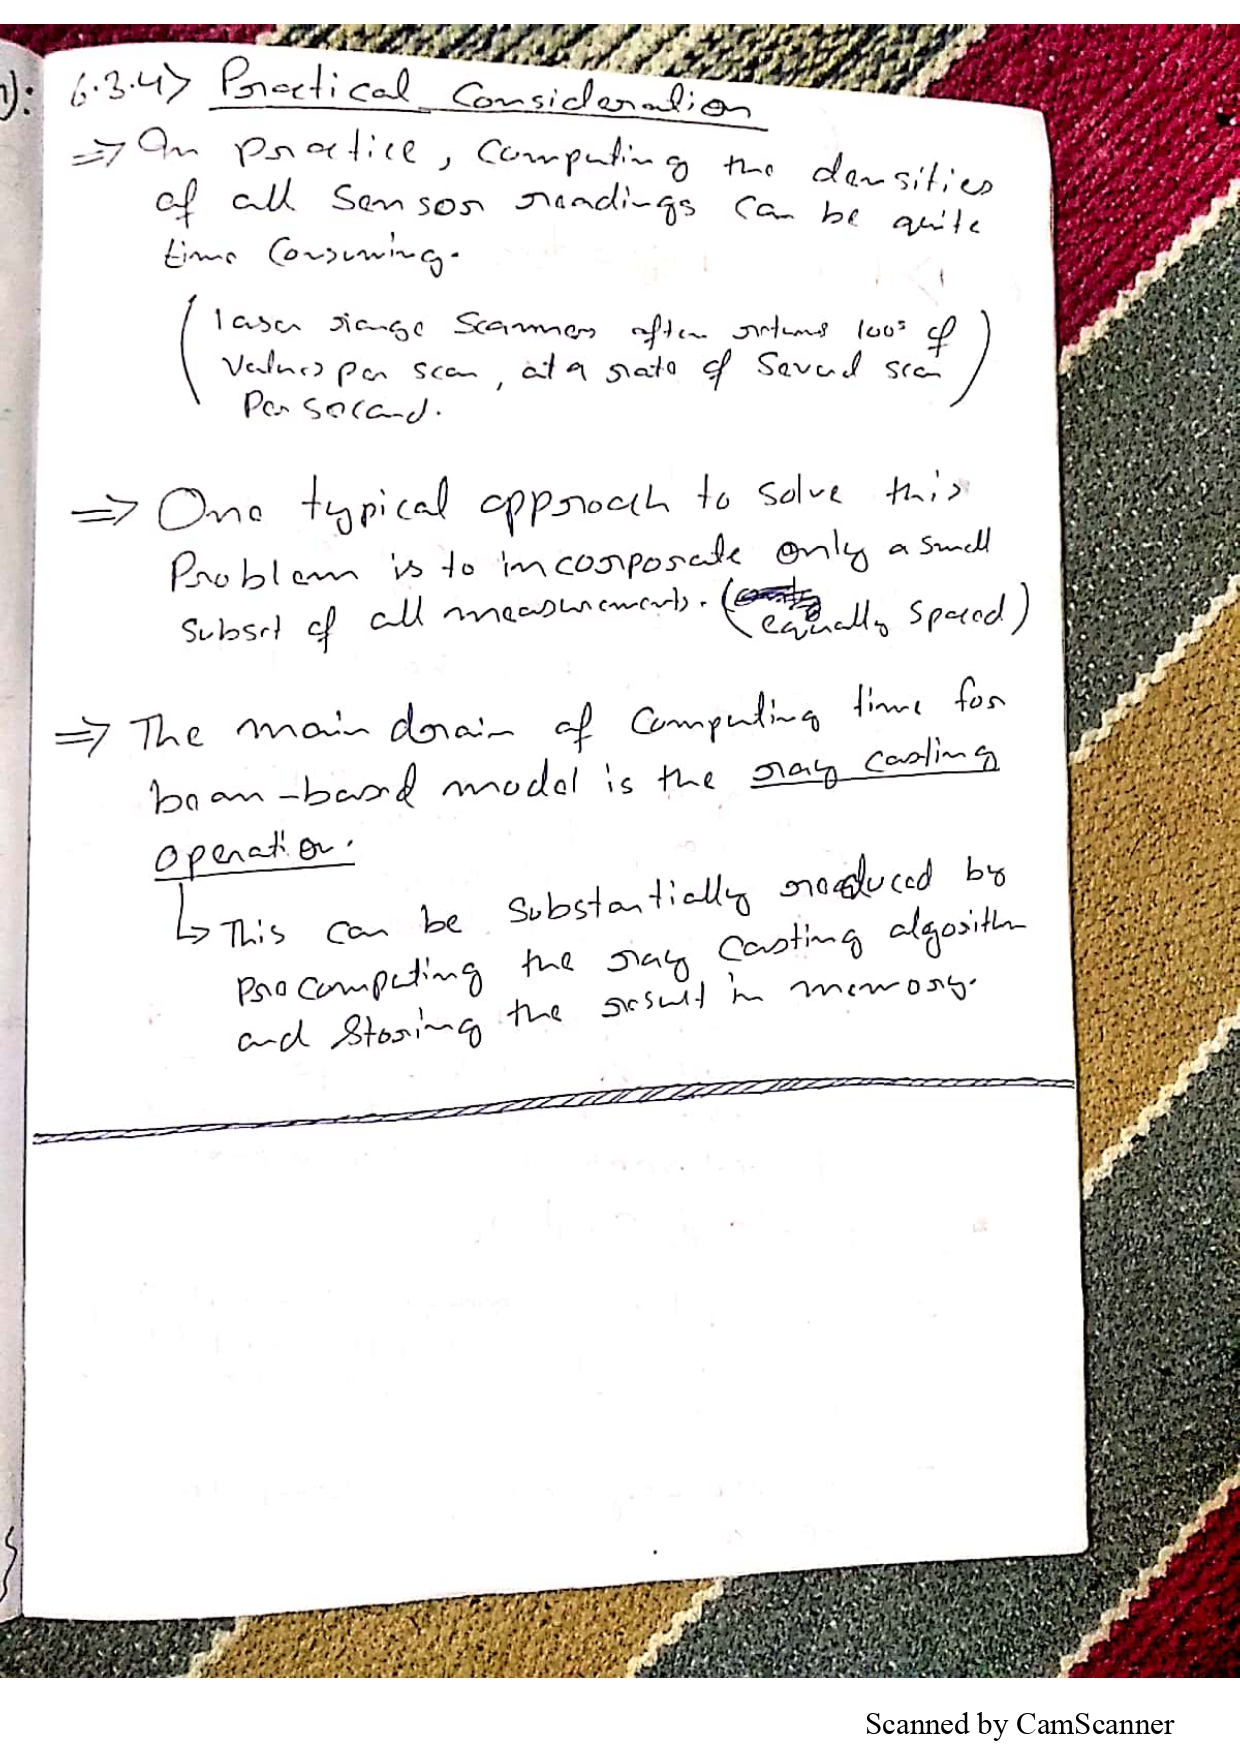 6.3.4> Practical Consideration
=> In practice, computing the densities
of all sensor readings can be quite
time consuming.
(laser range scanners often returns 100s of
values per scan, at a rate of several scan
per second.)
=> One typical approach to solve this
Problem is to incorporate only a small
subset of all measurements. (equally spaced)
=> The main drain of computing time for
beam-based model is the ray casting
operation.
↳ This can be substantially reduced by
precomputing the ray casting algorithm
and storing the result in memory.
Scanned by CamScanner